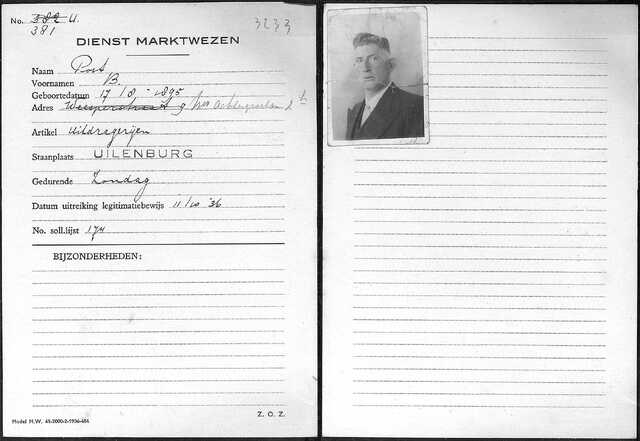 No. 382 U.
381
3233
DIENST MARKTWEZEN
Naam Post
Voornamen B.
Geboortedatum 17/8 - 1895
Adres Weesperstraat 9 hs Achtergracht
Artikel Uitdragerijen
Staanplaats UILENBURG
Gedurende Zondag
Datum uitreiking legitimatiebewijs 11/10 '36
No. soll.lijst 174
BIJZONDERHEDEN:
Z. O. Z.
Model M.W. 45-2000-2-1936-484